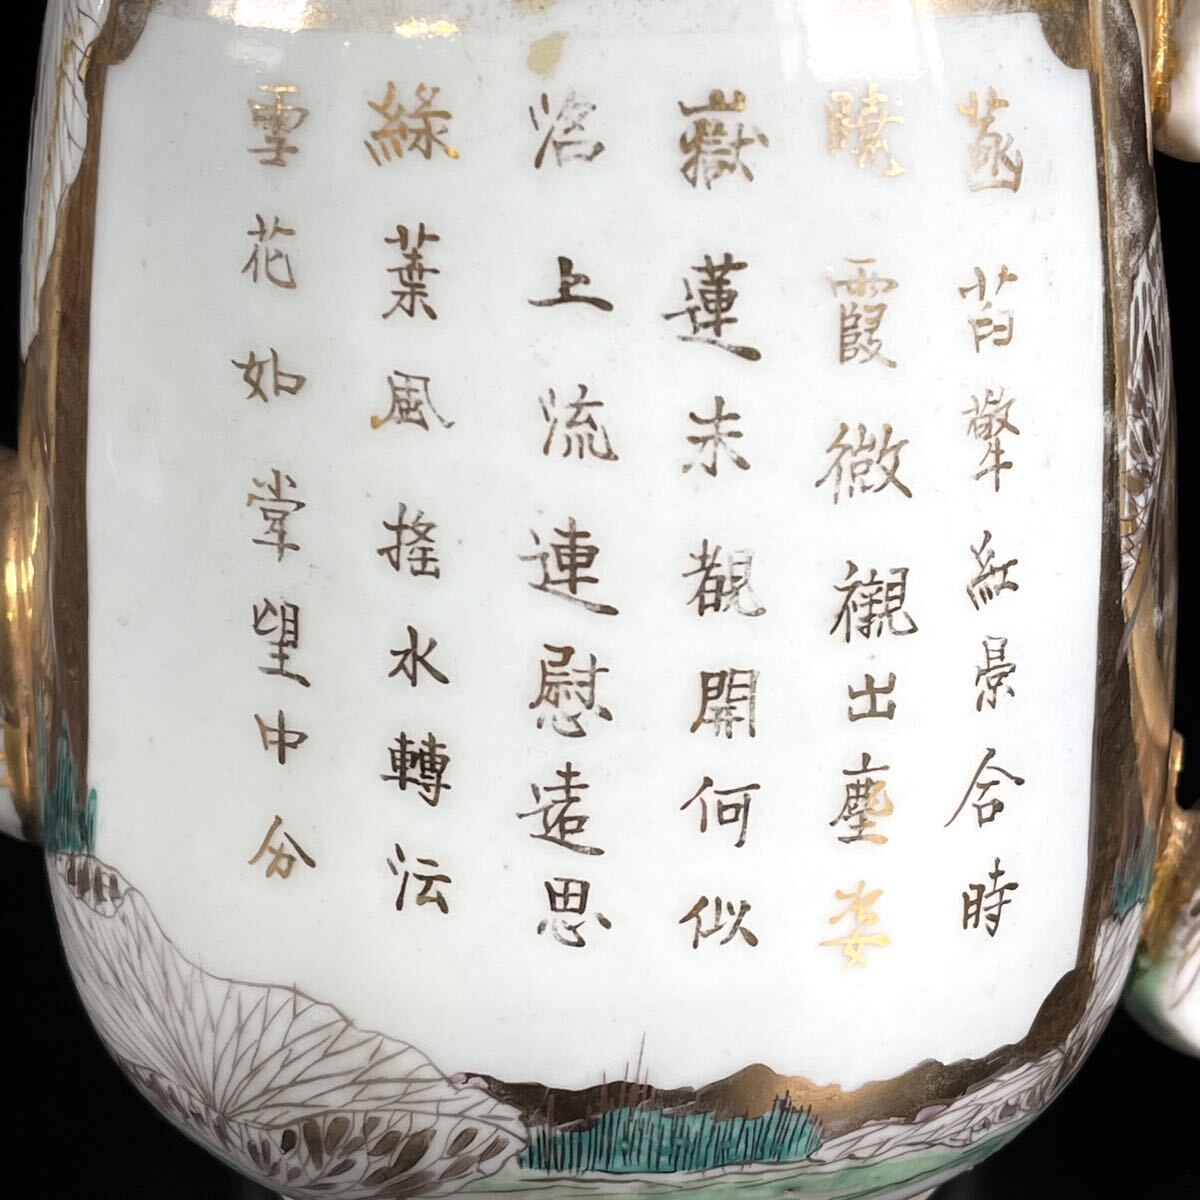 菡萏擎紅景合時
曉霞微襯出塵姿
嶽蓮未覩開何似
沼上流連慰遠思
綠葉風搖水轉沄
雪花如掌望中分